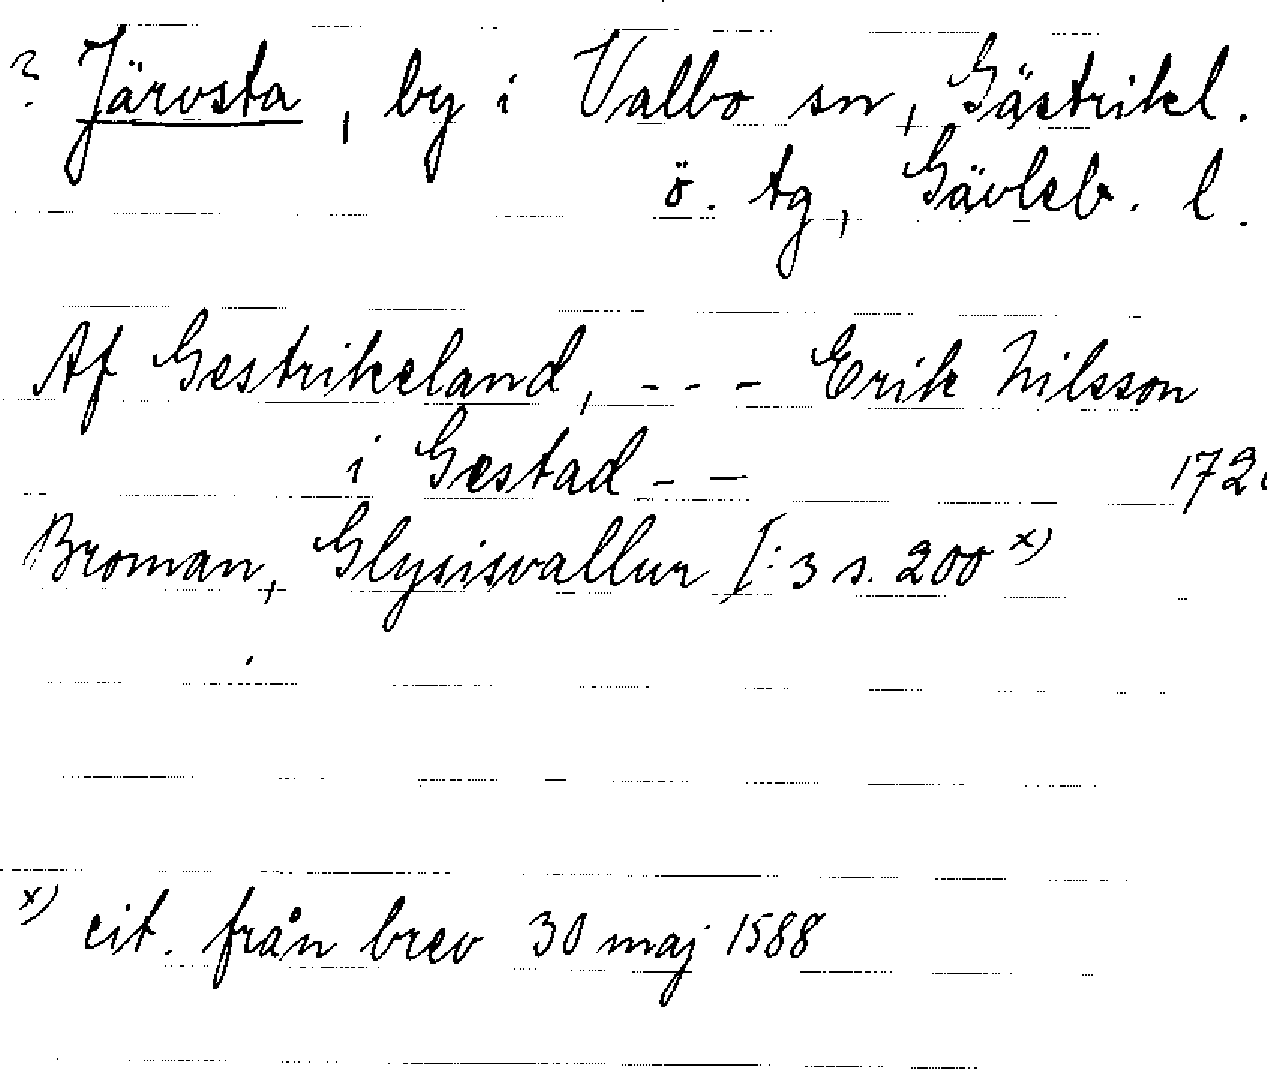 ? Järvsta, by i Valbo sn, Gästrikl.
ö. tg, Gävleb. l.
Af Gestrikeland, - - - Erik Nilsson
i Gestad - - 172
Broman, Glysisvallur I:3 s. 200 x)
x) cit. från brev 30 maj 1588